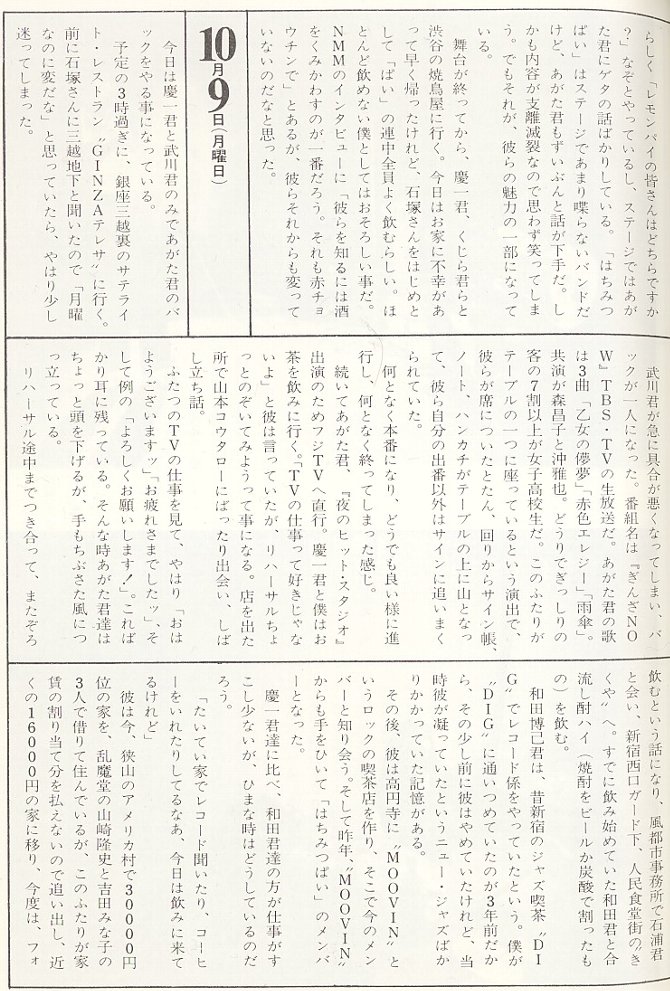 らしく「レモンパイの皆さんはどちらですか
?」なぞとやっているし、ステージではあが
た君にゲタの話ばかりしている。「はちみつ
ぱい」はステージであまり喋らないバンドだ
けど、あがた君もずいぶんと話が下手だ。し
かも内容が支離滅裂なので思わず笑ってしま
う。でもそれが、彼らの魅力の一部になって
いる。
舞台が終ってから、慶一君、くじら君らと
渋谷の焼鳥屋に行く。今日はお家に不幸があ
って早く帰ったけれど、石塚さんをはじめと
して「ぱい」の連中全員よく飲むらしい。ほ
とんど飲めない僕としてはおそろしい事だ。
NMMのインタビューに「彼らを知るには酒
をくみかわすのが一番だろう。それも赤チョ
ウチンで」とあるが、彼らそれからも変って
いないのだなと思った。
10月9日(月曜日)
今日は慶一君と武川君のみであがた君のバ
ックをやる事になっている。
予定の3時過ぎに、銀座三越裏のサテライ
ト・レストラン〝GINZAテレサ〟に行く。
前に石塚さんに三越地下と聞いたので「月曜
なのに変だな」と思っていたら、やはり少し
迷ってしまった。
武川君が急に具合が悪くなってしまい、バ
ックが一人になった。番組名は『ぎんざNO
W』TBS・TVの生放送だ。あがた君の歌
は3曲「乙女の儚夢」「赤色エレジー」「雨傘」。
共演が森昌子と沖雅也。どうりでぎっしりの
客の7割以上が女子高校生だ。このふたりが
テーブルの一つに座っているという演出で、
彼らが席についたとたん、回りからサイン帳、
ノート、ハンカチがテーブルの上に山となっ
て、彼ら自分の出番以外はサインに追いまく
られていた。
何となく本番になり、どうでも良い様に進
行し、何となく終ってしまった感じ。
続いてあがた君、『夜のヒット・スタジオ』
出演のためフジTVへ直行。慶一君と僕はお
茶を飲みに行く。「TVの仕事って好きじゃな
いよ」と彼は言っていたが、リハーサルちょ
っとのぞいてみようって事になる。店を出た
所で山本コウタローにばったり出会い、しば
し立ち話。
ふたつのTVの仕事を見て、やはり「おは
ようございますッ」「お疲れさまでしたッ」、そ
して例の「よろしくお願いします!」。これば
かり耳に残っている。そんな時あがた君達は
ちょっと頭を下げるが、手もちぶさた風につ
っ立っている。
リハーサル途中までつき合って、またぞろ
飲むという話になり、風都市事務所で石浦君
と会い、新宿西口ガード下、人民食堂街の〝き
くや〟へ。すでに飲み始めていた和田君と合
流し酎ハイ(焼酎をビールか炭酸で割ったも
の)を飲む。
和田博巳君は、昔新宿のジャズ喫茶〝DI
G〟でレコード係をやっていたという。僕が
〝DIG〟に通いつめていたのが3年前だか
ら、その少し前に彼はやめていたけれど、当
時彼が凝っていたというニュー・ジャズばか
りかかっていた記憶がある。
その後、彼は高円寺に〝MOOVIN〟と
いうロックの喫茶店を作り、そこで今のメン
バーと知り会う。そして昨年、〝MOOVIN〟
からも手をひいて「はちみつぱい」のメンバ
ーとなった。
慶一君達に比べ、和田君達の方が仕事がす
こし少ないが、ひまな時はどうしているのだ
ろう。
「たいてい家でレコード聞いたり、コーヒ
ーをいれたりしてるなあ、今日は飲みに来て
るけれど」
彼は今、狭山のアメリカ村で30000円
位の家を、乱魔堂の山崎隆史と吉田みな子の
3人で借りて住んでいるが、このふたりが家
賃の割り当て分を払えないので追い出し、近
くの16000円の家に移り、今度は、フォ